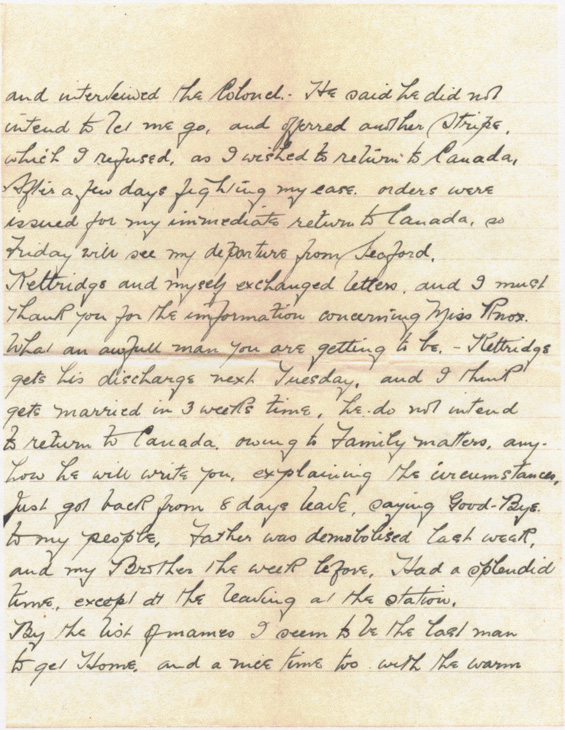 and interveiwed the Colonel. He said he did not
intend to let me go, and offerred another Stripe,
which I refused, as I wished to return to Canada,
After a few days fighting my case. orders were
issued for my immediate return to Canada, so
Friday will see my departure from Seaford.
Kettridge and myself exchanged letters, and I must
thank you for the information concerning Miss Knox.
What an awfull man you are getting to be. - Kettridge
gets his discharge next Tuesday, and I think
gets married in 3 weeks time, he do not intend
to return to Canada. owing to Family matters, any-
how he will write you, explaining the circumstances,
Just got back from 8 days leave, saying Good-Bye
to my people, Father was demobolised last week,
and my Brother the week before, Had a splendid
time, except at the leaving at the station.
By the list of names I seem to be the last man
to get Home. and a nice time too. with the warm